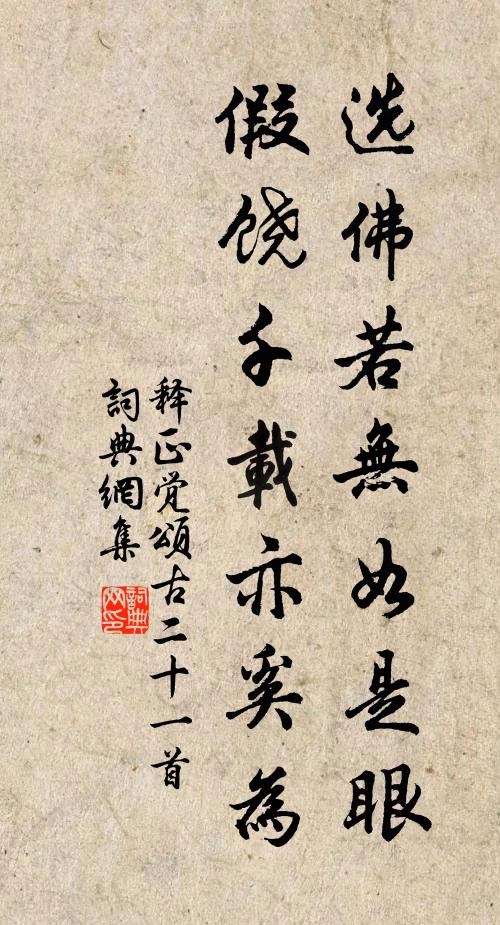 选佛若無如是眼
假饶千載亦奚為
释正觉頌古二十一首
詞典網集
詞典
网印